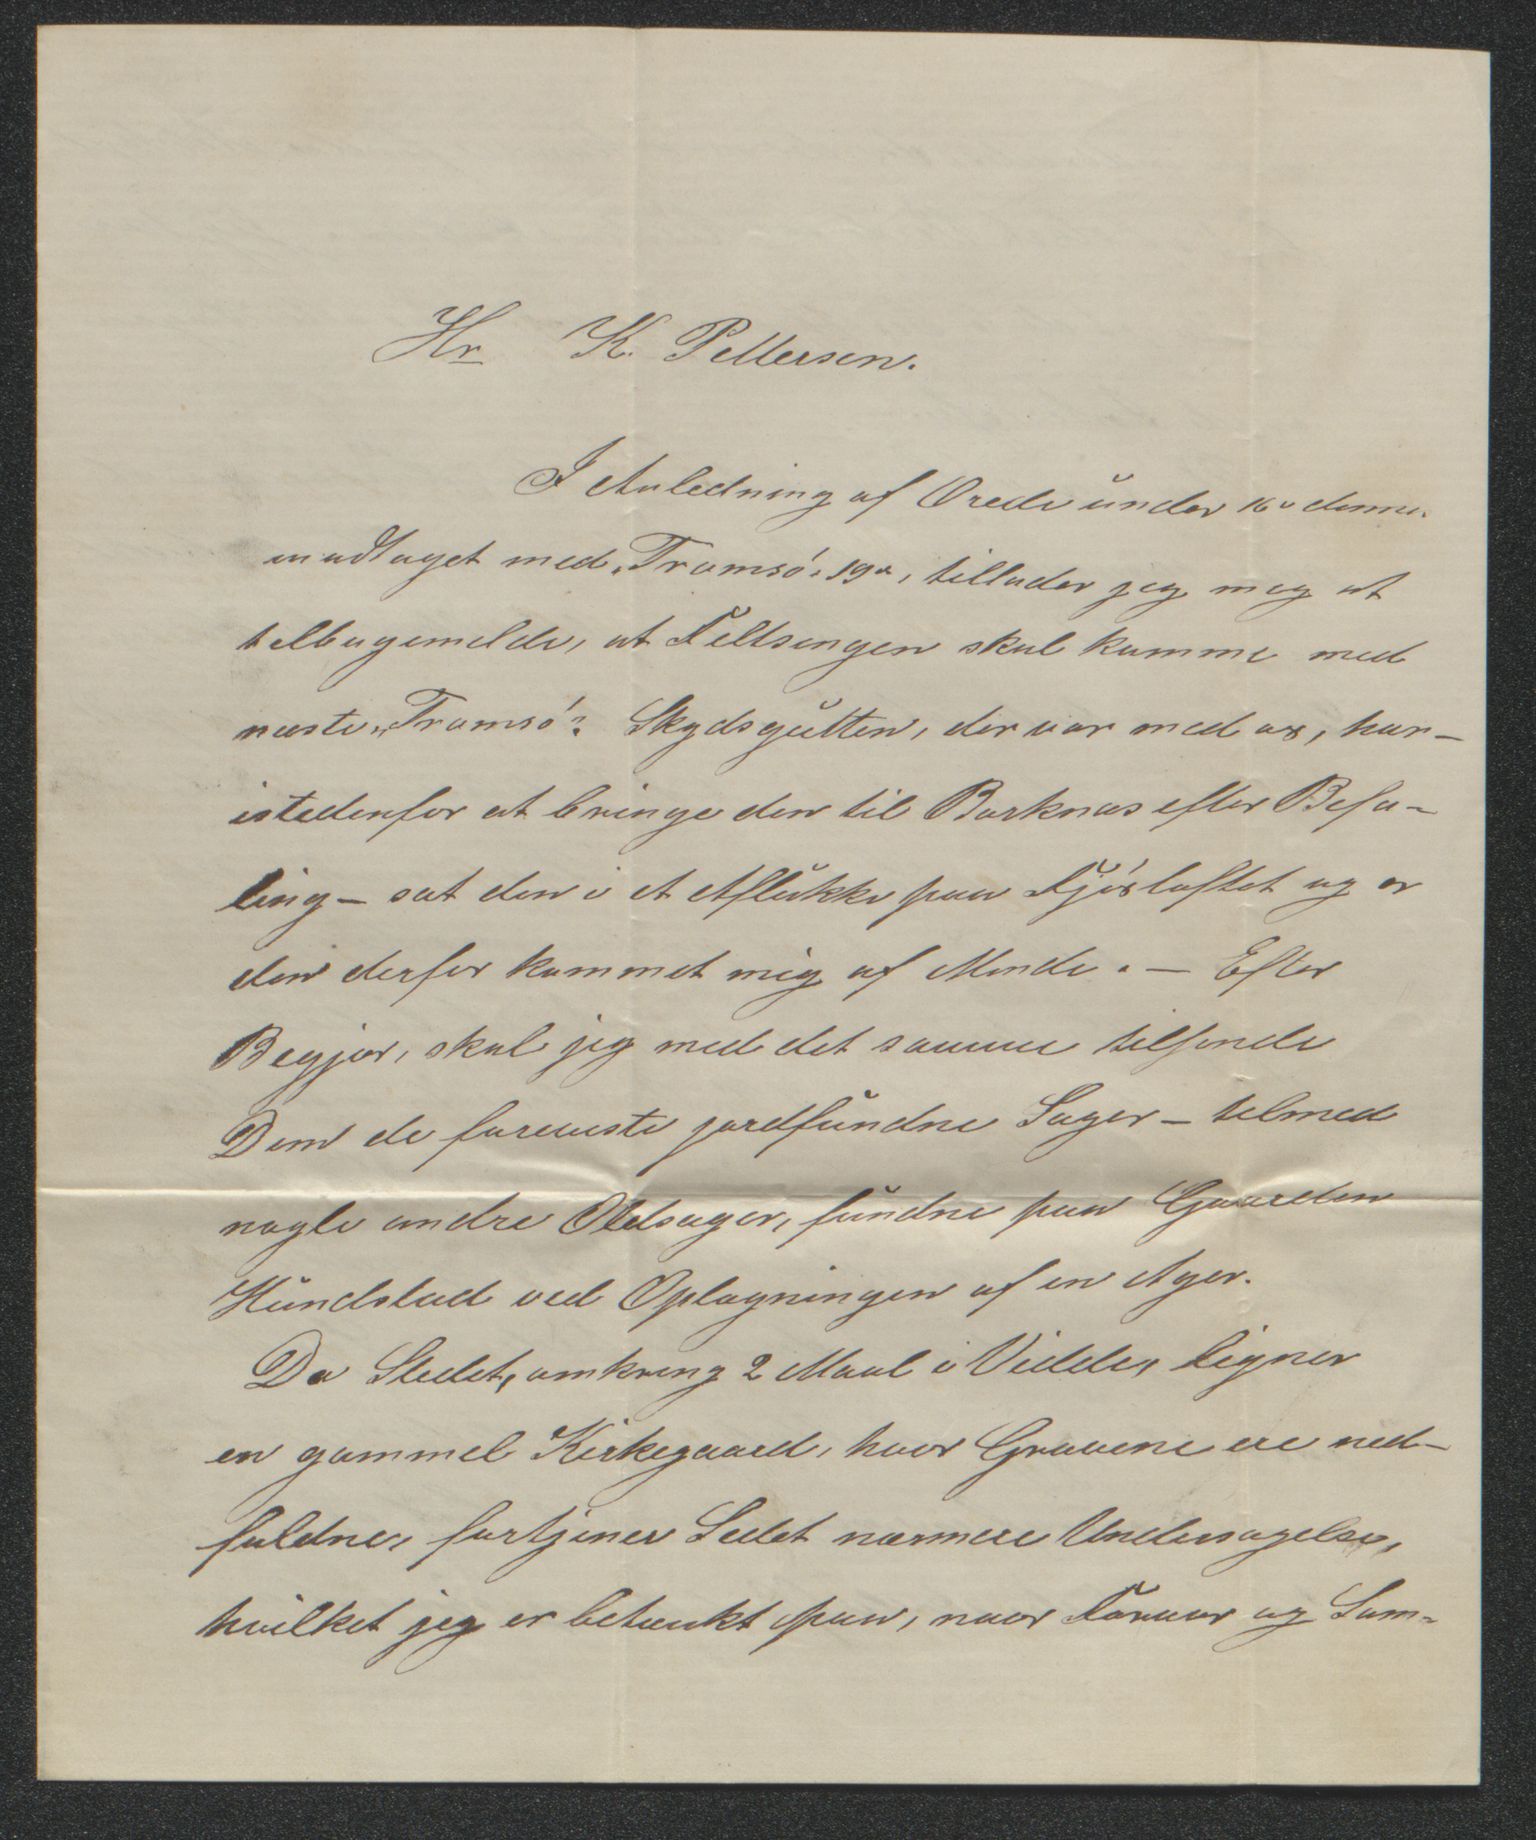 Hr K. Pettersen.
I Anledning af Brede under 16de denne
modtaget med „Tromsö“ 19de, tillader jeg mig at
tilbagemelde, at Feltsengen skal komme med
næste „Tromsö“. Skydsgutten, der var med os, har –
istedenfor at bringe den til Barknæs efter Befa-
ling – sat den i et Aflukke paa Fjösloftet og er
den derfor kommet mig af Minde. – Efter
Begjær, skal jeg med det samme tilsende
Dem de foreviste jordfundne Sager – tilmed
nogle andre Oldsager, fundne paa Gaarden
Kundstad ved Oplagningen af en Ager.
Da Stedet, omkring 2 Maal i Vidde, ligner
en gammel Kirkegaard, hvor Gravene ere ned-
faldne, fortjener Sedet nærmere Undersøgelse,
hvilket jeg er betænkt paa, naar Foraar og Som-